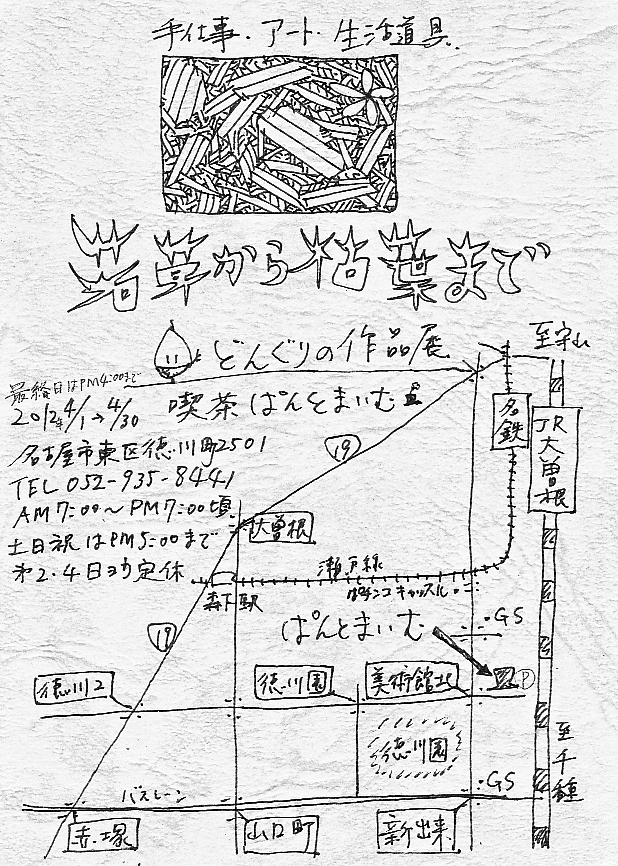 手仕事・アート・生活道具
若草から枯葉まで
どんぐりの作品展
最終日はPM4:00まで
2012年 4/1→4/30
喫茶 ぱんとまいむ
名古屋市東区徳川町2501
TEL 052-935-8441
AM7:00〜PM7:00頃
土日祝はPM5:00まで
第2.4日ヨウ定休
至守山
名鉄
JR大曽根
19
大曽根
瀬戸線
パチンコキャッスル
森下駅
ぱんとまいむ
GS
P
19
徳川2
徳川園
美術館北
徳川園
至千種
GS
バスレーン
赤塚
山口町
新出来